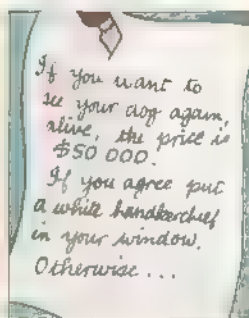 If you want to
see your dog again,
alive, the price is
$50 000.
If you agree put
a white handkerchief
in your window.
Otherwise ...